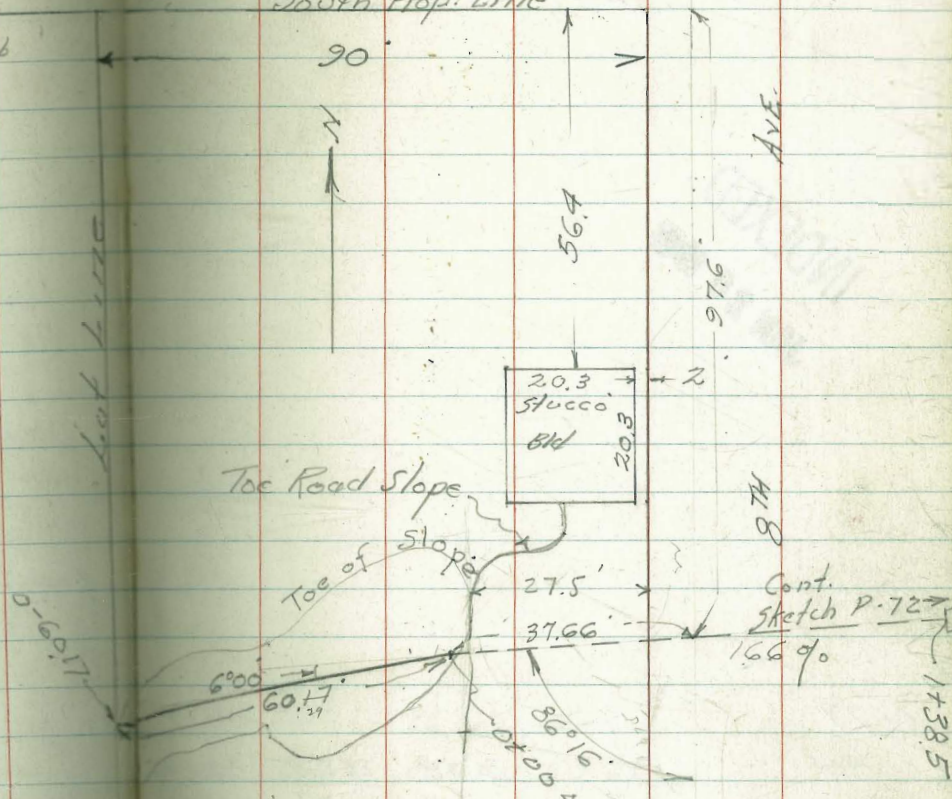 South Prop. Line
90
N
56.4
AVE.
97.6
Lot Line
20.3
2
Stucco
Bld
20.3
Toe Road Slope
8TH
Toe of Slope
27.5'
Cont.
Sketch P. 72
37.66
1.66 %
0-60.17
6°00'
60.17
29
86°16'
0+00
1+38.5